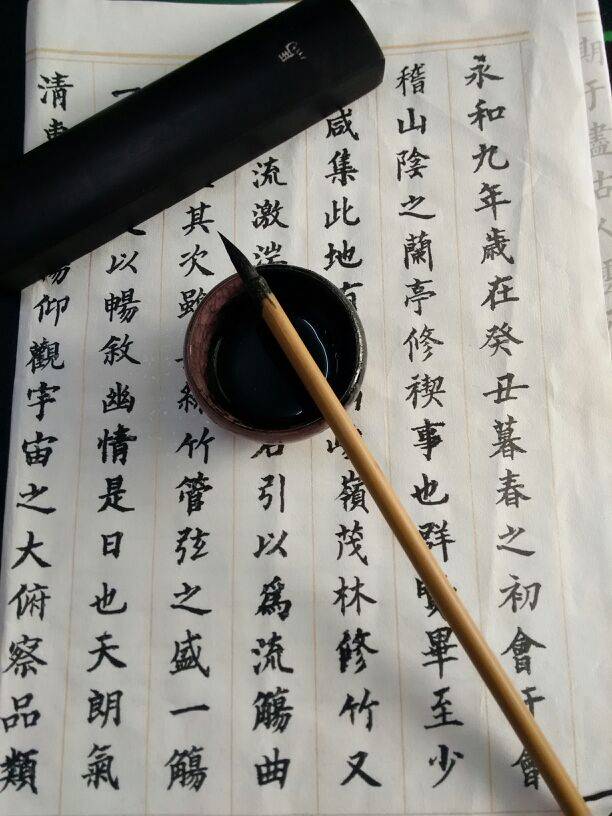 期于盡古人
永和九年歲在癸丑暮春之初會于會
稽山陰之蘭亭修禊事也群賢畢至少
咸集此地有峻嶺茂林修竹又
流激湍右引以爲流觴曲
其次雖絲竹管弦之盛一觴
一以暢敘幽情是日也天朗氣
清惠暢仰觀宇宙之大俯察品類